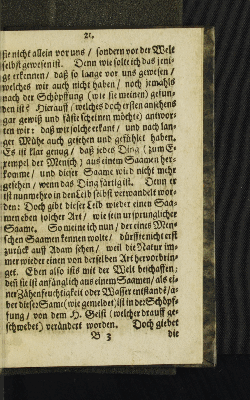 21.
sie nicht allein vor uns / sondern vor der Welt
selbst gewesen ist. Denn wie solte ich das jeni-
ge erkennen / daß so lange vor uns gewesen /
welches wir auch nicht haben / noch jemahls
nach der Schöpffung (wie sie meinen) gefun-
den ist? Hierauff / (welches doch ersten ansehens
gar gewiß und fäste scheinen möchte) antwor-
ten wir: daß wir solche erkant / und nach lan-
ger Mühe auch gesehen und gefühlet haben.
Es ist klar genug / daß jedes Ding (zum E-
xempel der Mensch) aus einem Saamen her-
komme / und dieser Saame wird nicht mehr
gesehen / wenn das Ding färtig ist. Denn er
ist nunmehro in den Leib selbst verwandelt wor-
den: Doch gibt dieser Leib wieder einen Saa-
men eben solcher Art / wie sein ursprunglicher
Saame. So meine ich nun / der eines Men-
schen Saamen kennen wolte / dürffte nicht erst
zurück auff Adam sehen / weil die Natur im-
mer wieder einen von derselben Art hervorbrin-
get. Eben also ists mit der Welt beschaffen;
denn sie ist anfänglich aus einem Saamen / als ei-
ner Zähen feuchtigkeit oder Wasser entstanden / a-
ber dieser Same (wie gemeldet) ist in der Schöpf-
fung / von dem H. Geist (welcher drauff ge-
schwebet) verändert worden. Doch giebet
B 3 die